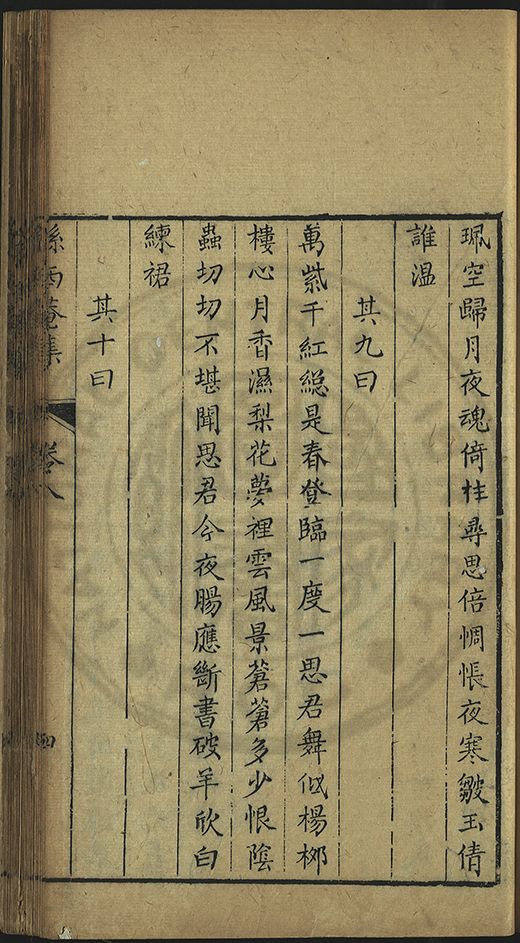 珮空歸月夜魂倚柱尋思倍惆悵夜寒皺玉倩
誰温
其九曰
萬紫千紅緫是春登臨一度一思君舞低楊栁
樓心月香濕梨花夢裡雲風景蒼蒼多少恨陰
蟲切切不堪聞思君今夜腸應斷書破羊欣白
練裙
其十曰
西菴集
卷八